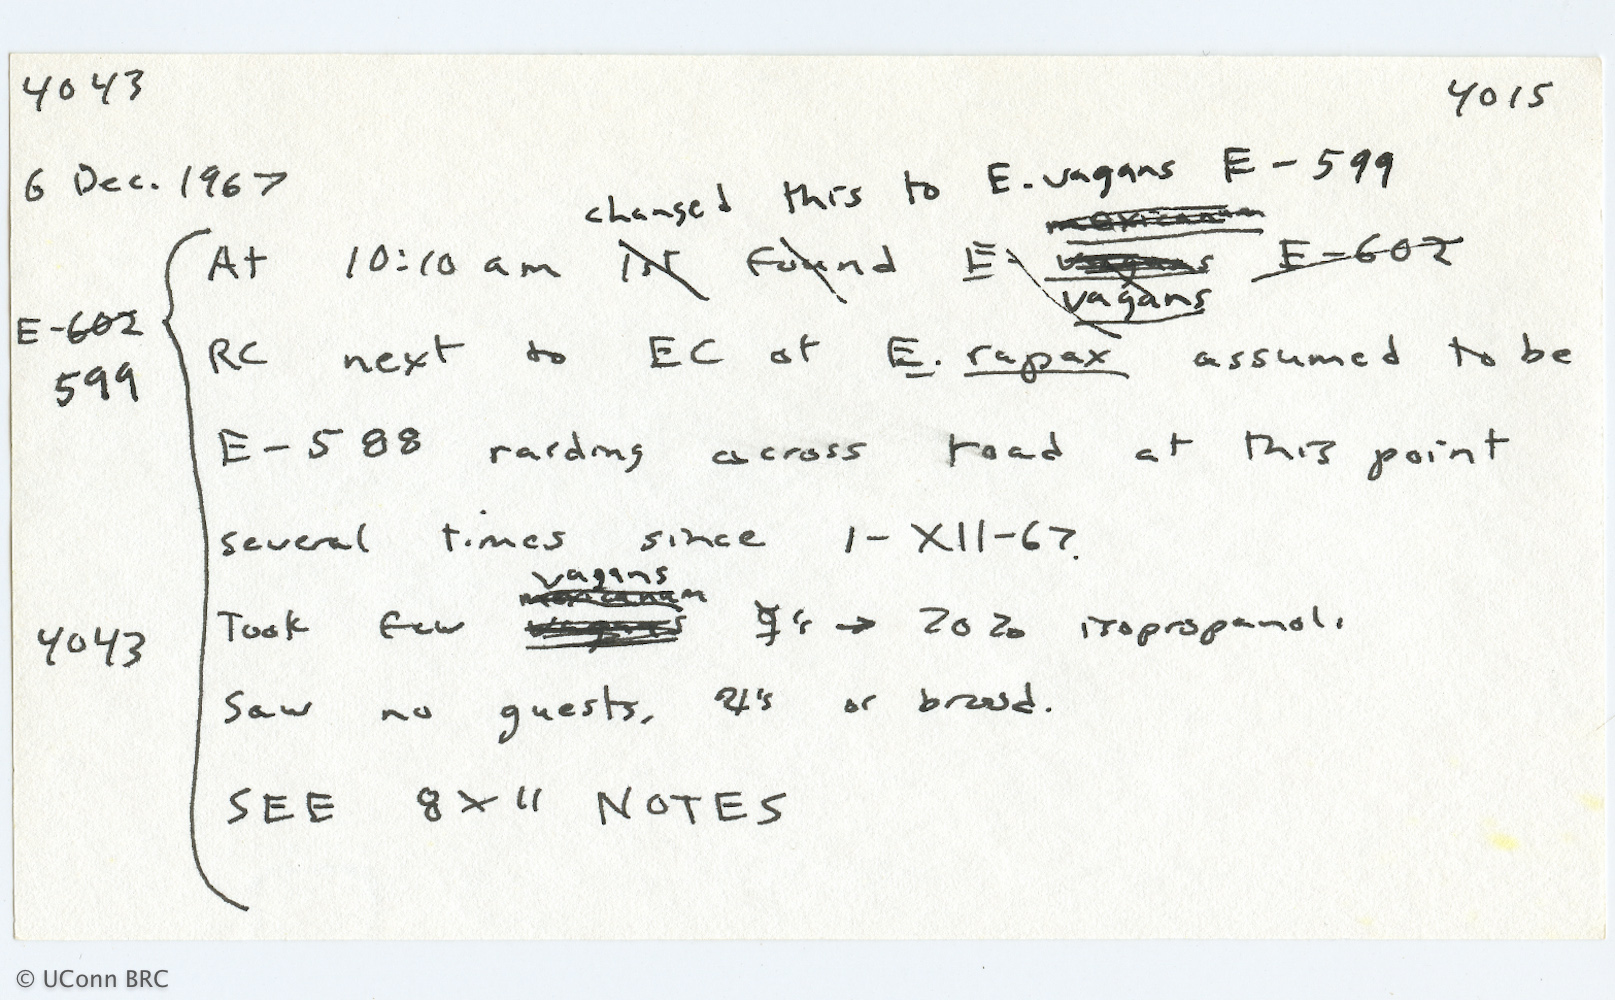 4043 4015
6 Dec. 1967
changed this to E. vagans E-599
mexicanum
At 10:10 am 1st found E. vagans E-602
vagans
E-602 RC next to EC of E. rapax assumed to be
599
E-588 raiding across road at this point
several times since 1-XII-67.
vagans
mexicanum
4043 Took few vagans ☿'s → 70% isopropanol.
Saw no guests, ♃'s or brood.
SEE 8X11 NOTES
© UConn BRC